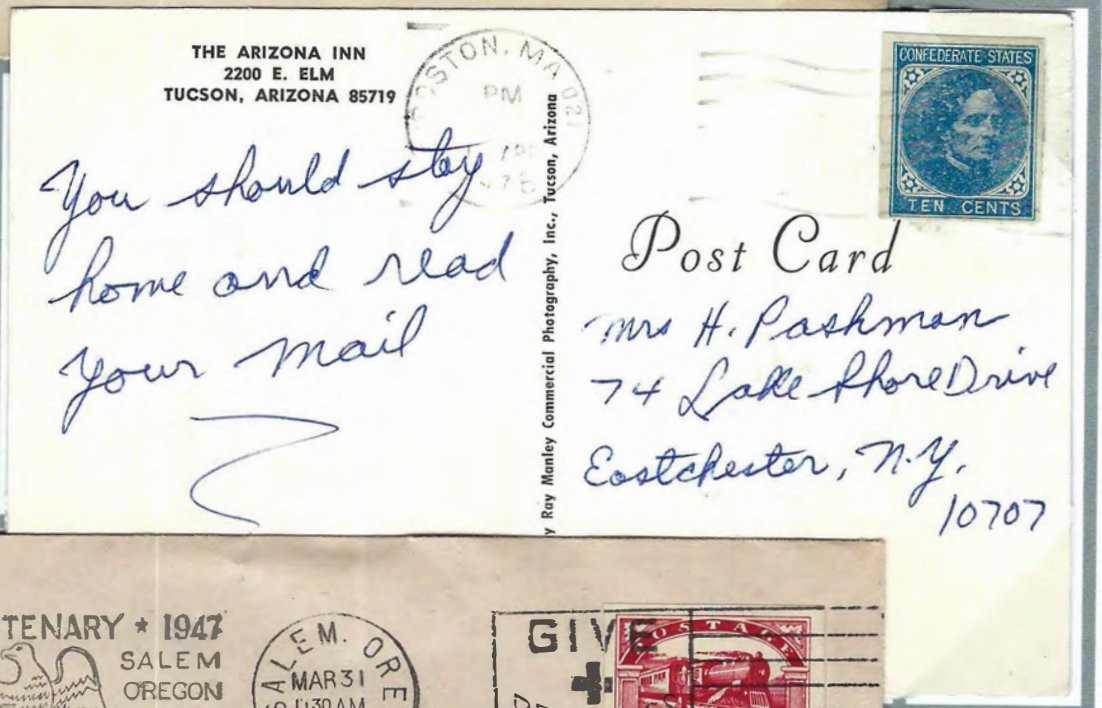 THE ARIZONA INN
2200 E. ELM
TUCSON, ARIZONA 85719
You should stay
home and read
your mail
BOSTON, MA 021
PM
y Ray Manley Commercial Photography, Inc., Tucson, Arizona
CONFEDERATE STATES
TEN CENTS
Post Card
Mrs H. Pashman
74 Lake Shore Drive
Eastchester, N.Y.
10707
TENARY * 1947
SALEM
OREGON
SALEM. ORE
MAR 31
11 30 AM
GIVE
POSTAGE